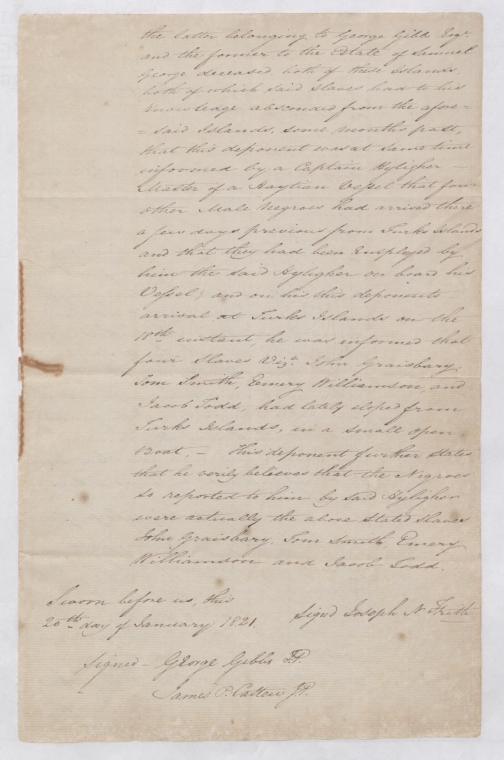 the latter belonging to George Gibbs Esqr.
and the former to the Estate of Samuel
George deceased both of these islands
both of which said slaves had to his
knowledge absconded from the afore=
=said Islands, some months past,
that this deponent was at same time
informed by a Captain Hyligher —
Master of a Haytian Vessel that four
other Male Negroes had arrived there
a few days previous from Turks Islands
and that they had been employed by
him the said Hyligher on board his
Vessel; and on his this deponents
arrival at Turks Islands on the
18th instant, he was informed that
four Slaves Vizt. John Graisbary,
Tom Smith, Emery Williamson, and
Jacob Todd, had lately eloped from
Turks Islands, in a small open
Boat, — This deponent further States
that he verily believes that the Negroes
so reported to him by said Hyligher
were actually the above Stated Slaves
John Graisbary, Tom Smith, Emery
Williamson and Jacob Todd.
Sworn before us, this
20th day of January 1821. Signd Joseph N Frith
Signed — George Gibbs JP.
James P. JP.